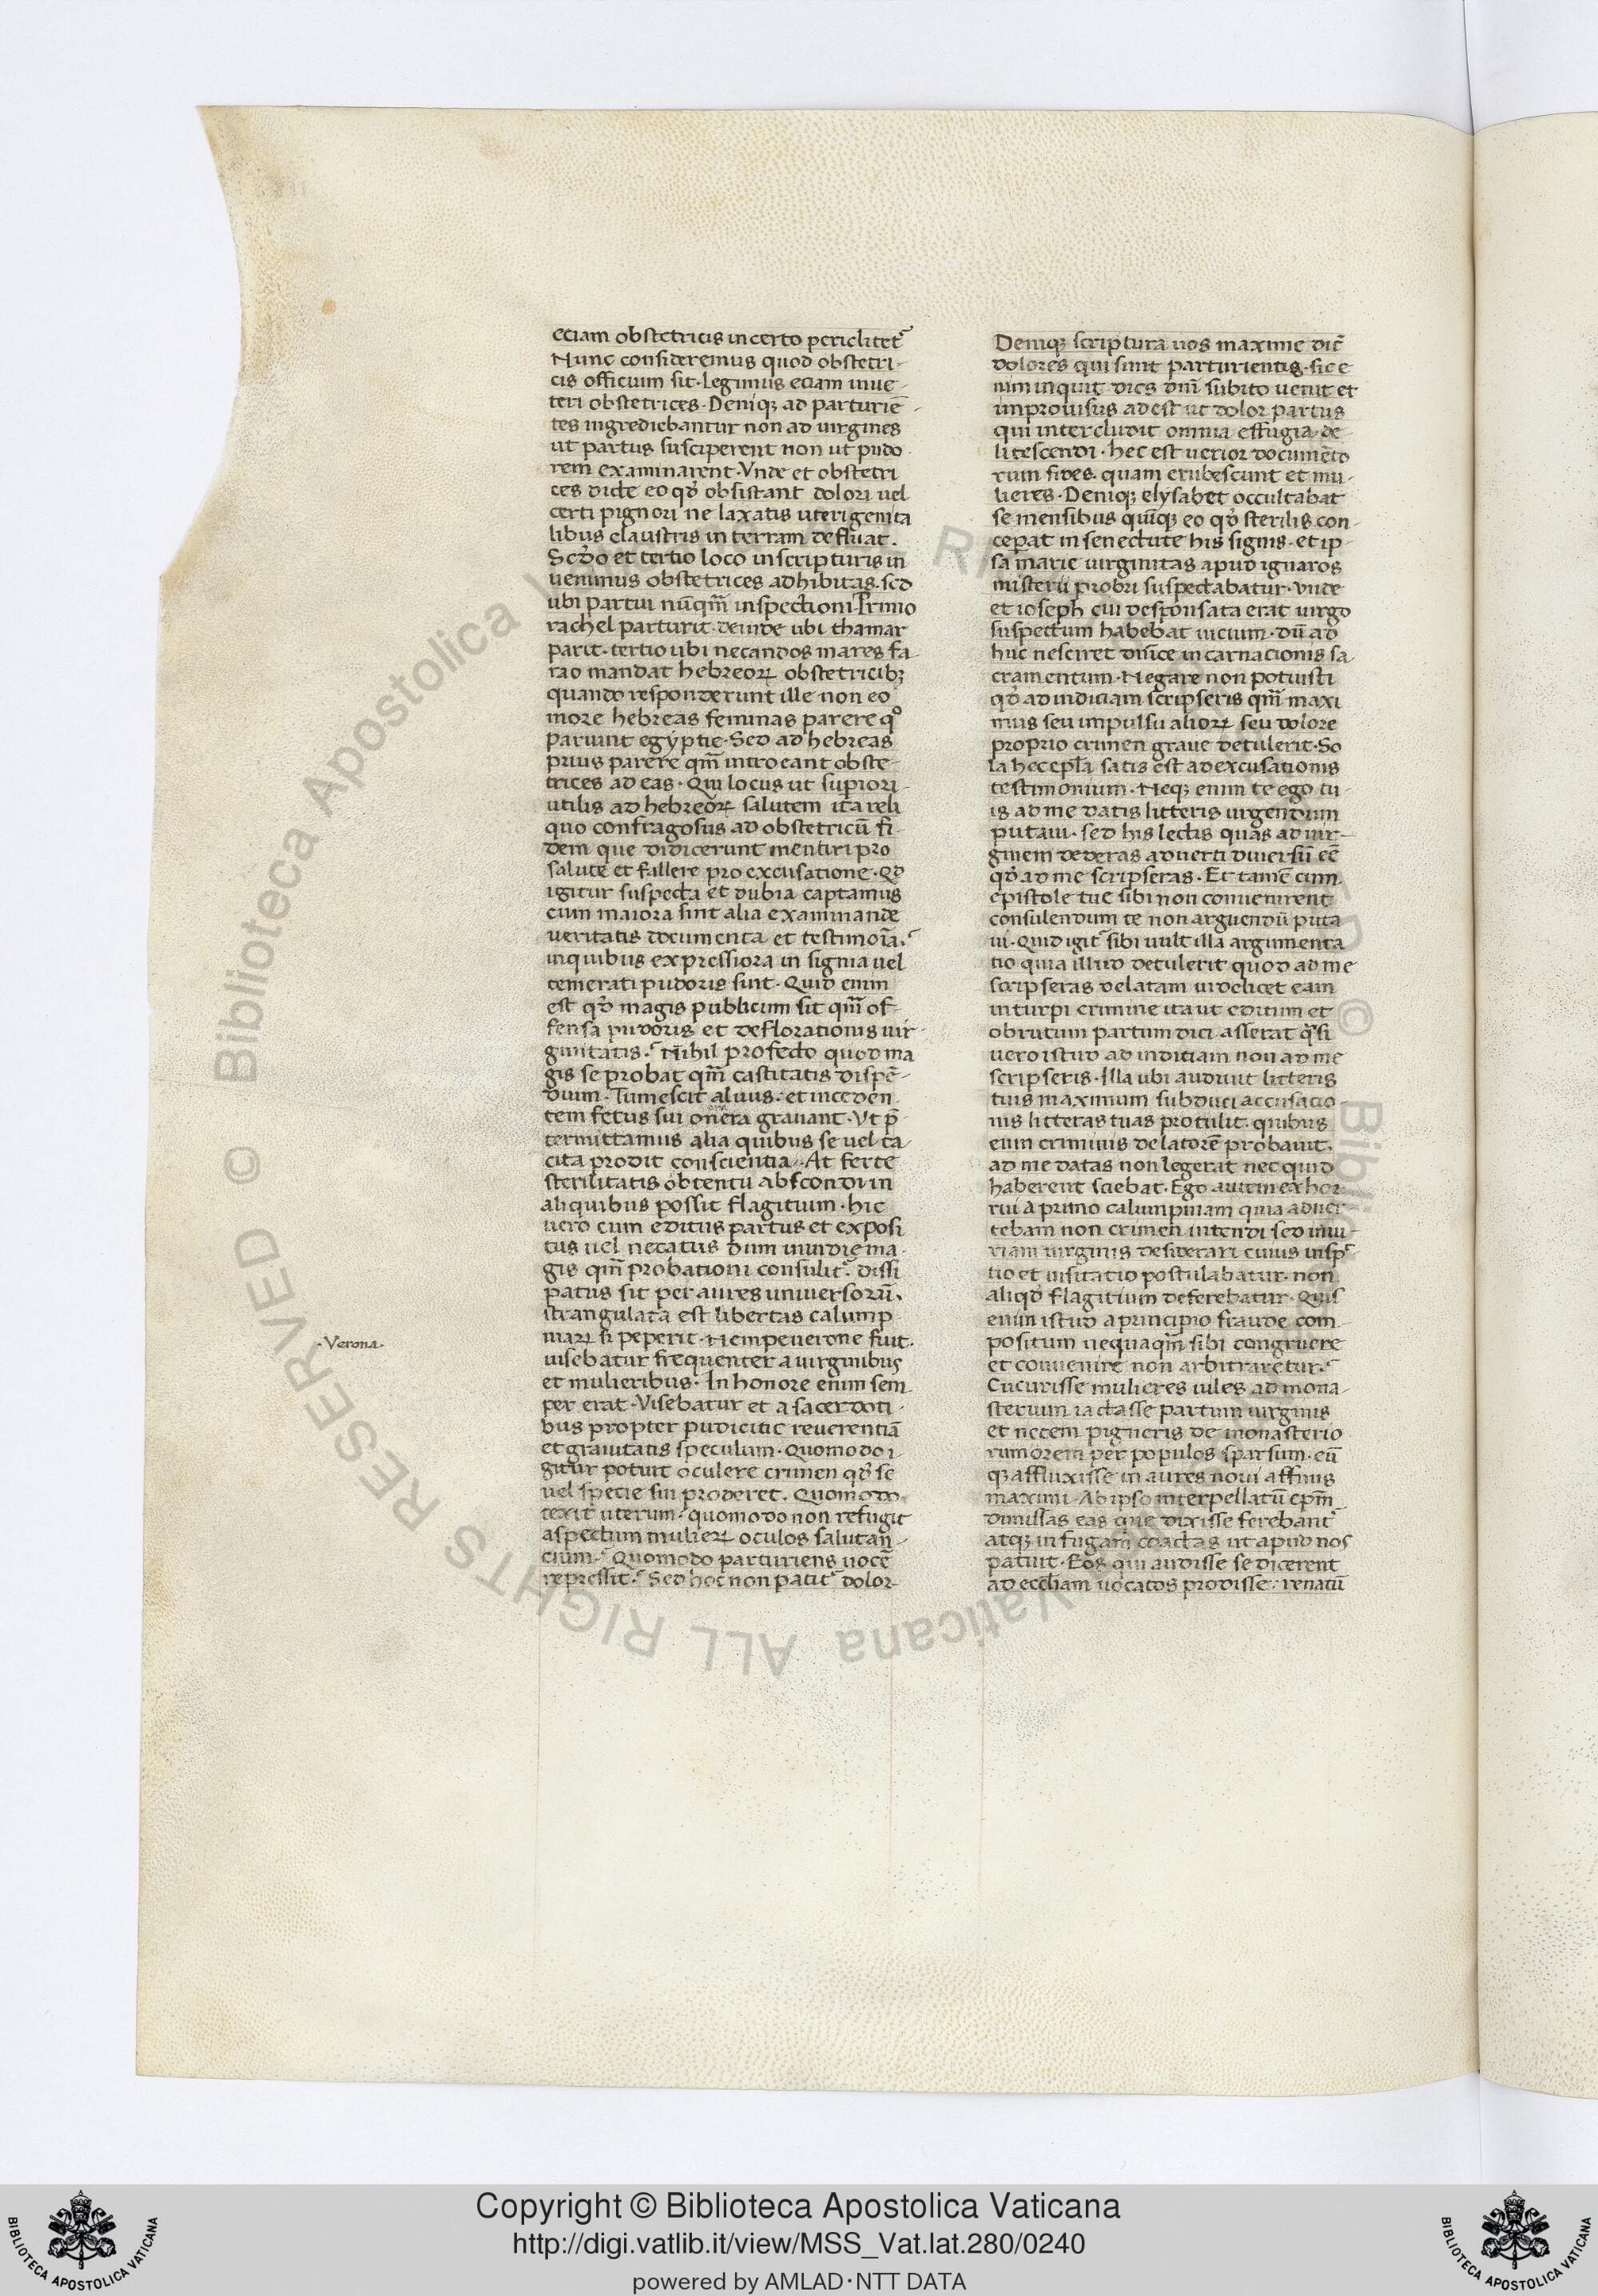 eciam obstetricis incerto periclitet᷑
Nunc consideremus quod obstetri-
cis officium sit· Legimus eciam uue-
teri obstetrices· Deniqꝫ ad parturiē-
tes ingrediebantur non ad uirgines
ut partus susciperent non ut pudo
rem examinarent· Vnde et obstetri
ces dicte eo qđ obsistant dolori uel
certi pignori ne laxatis uteri genita
libus claustris in terram defluat.
Scđo et tertio loco in scripturis in
uenimus obstetrices adhibitas. sed
ubi partui nūqm̄ inspectioni· Primo
rachel parturit· deinde ubi thamar
parit· tertio ubi necandos mares fa-
rao mandat hebreoꝝ obstetricibꝫ
quando responderunt ille non eo
more hebreas feminas parere qº
pariunt egyptie· Sed ad hebreas
prius parere qm̄ introeant obste-
trices ad eas· Qui locus ut supiori-
utilis ad hebreoꝝ salutem ita reli
quo confragosus ad obstetricū fi-
dem que didicerunt mentiri pro
salute et fallere pro excusatione· Qđ
igitur suspecta et dubia captamus
cum maiora sint alia examinande
ueritatis documenta et testimoīa.
in quibus expressiora insignia uel
temerati pudoris sint· Quid enim
est qđ magis publicum sit qm̄ of-
fensa pudoris et deflorationis uir-
ginitatis. Nihil profecto quod ma
gis se probat qm̄ castitatis dispē-
dium· Tumescit aluus· et inceden-
tem fetus sui onera grauant· Vt p̄
termittamus alia quibus se uel ta-
cita prodit conscientia· At ferte
sterilitatis obtentu abscondi in
aliquibus possit flagitium· hic
uero cum editus partus et exposi
tus uel necatus dum inuidie ma-
gis qm̄ probationi consulit᷑. dissi
patus sit per aures uniuersorū.
strangulata est libertas calump-
niaꝝ si peperit· Nempe uerone fuit.
·Verona·
uisebatur frequenter a uirginibus
et mulieribus· In honore enim sem
per erat· Visebatur et a sacerdoti-
bus propter pudicitie reuerentiā
et grauitatis speculum· Quomodo i-
gitur potuit oculere crimen qđ se
uel specie sui proderet. Quomodo
texit uterum· quomodo non refugit
aspectum mulieꝝ oculos salutan̄-
cium· Quomodo parturiens uocē
repressit. Sed hoc non patit᷑ dolor
Deniqꝫ scriptura uos maxime dic̄
dolores qui sunt parturientis· sic e
nim inquit dies dnī subito uenit et
improuisus adest ut dolor partus
qui intercludit omnia effugia de-
litescendi· hec est uerior documēto
rum fides· quam erubescunt et mu-
lieres· Deniqꝫ elysabet occultabat
se mensibus quīqꝫ eo qđ sterilis con-
ceperat in senectute his signis· et ip-
sa marie uirginitas apud ignaros
misterii probri suspectabatur· Vnde
et ioseph cui desponsata erat uirgo
suspectum habebat uicium· dū ad
huc nesciret dnīce incarnacionis sa-
cramentum· Negare non potuisti
qđ ad indiciam scripseris qm̄ maxi
mus seu impulsu alioꝝ seu dolore
proprio crimen graue detulerit· So
la hec epl̄a satis est ad excusationis
testimonium· Neqꝫ enim te ego tu-
is ad me datis litteris urgendum
putaui· sed his lectis quas ad uir-
ginem dederas aduerti diuersū eē
qđ ad me scripseras· Et tamē cum
epistole tue sibi non conuenirent
consulendum te non arguendū puta
ui· Quid igit᷑ sibi uult illa argumenta
tio quia illud detulerit quod ad me
scripseras delatam uidelicet eam
in turpi crimine ita ut editum et
obrutum partum dici asserat q̄si
uero istud ad indiciam non ad me
scripseris· Illa ubi audiuit litteris
tuis maximum subduci accusacio-
nis litteras tuas protulit· quibus
eum criminis delatorē probauit.
ad me datas non legerat nec quid
haberent sciebat· Ego autem exhor
rui a primo calumpniam quia aduer
tebam non crimen intendi sed iniu-
riam uirginis desiderari cuius insp̄-
tio et uisitatio postulabatur· non
aliqđ flagitium deferebatur· Quis
enim istud a principio fraude com-
positum nequaqm̄ sibi congruere
et conuenire non arbitraretur.
Cucurisse mulieres uiles ad mona-
sterium iactasse partum uirginis
et necem pigneris de monasterio
rumorem per populos sparsum· eū
qꝫ affluxisse in aures noui affinis
maximi· Ab ipso interpellatū epm̄
dimissas eas que dixisse ferebant᷑
atqꝫ in fugam coactas ut apud nos
patuit· Eos qui audisse se dicerent
ad ecclesiam uocatos prodisse· renatū
Copyright © Biblioteca Apostolica Vaticana
http://digi.vatlib.it/view/MSS_Vat.lat.280/0240
powered by AMLAD·NTT DATA
BIBLIOTECA APOSTOLICA VATICANA
BIBLIOTECA APOSTOLICA VATICANA
© Biblioteca Apostolica Vaticana ALL RIGHTS RESERVED © Biblioteca Apostolica Vaticana ALL RIGHTS RESERVED